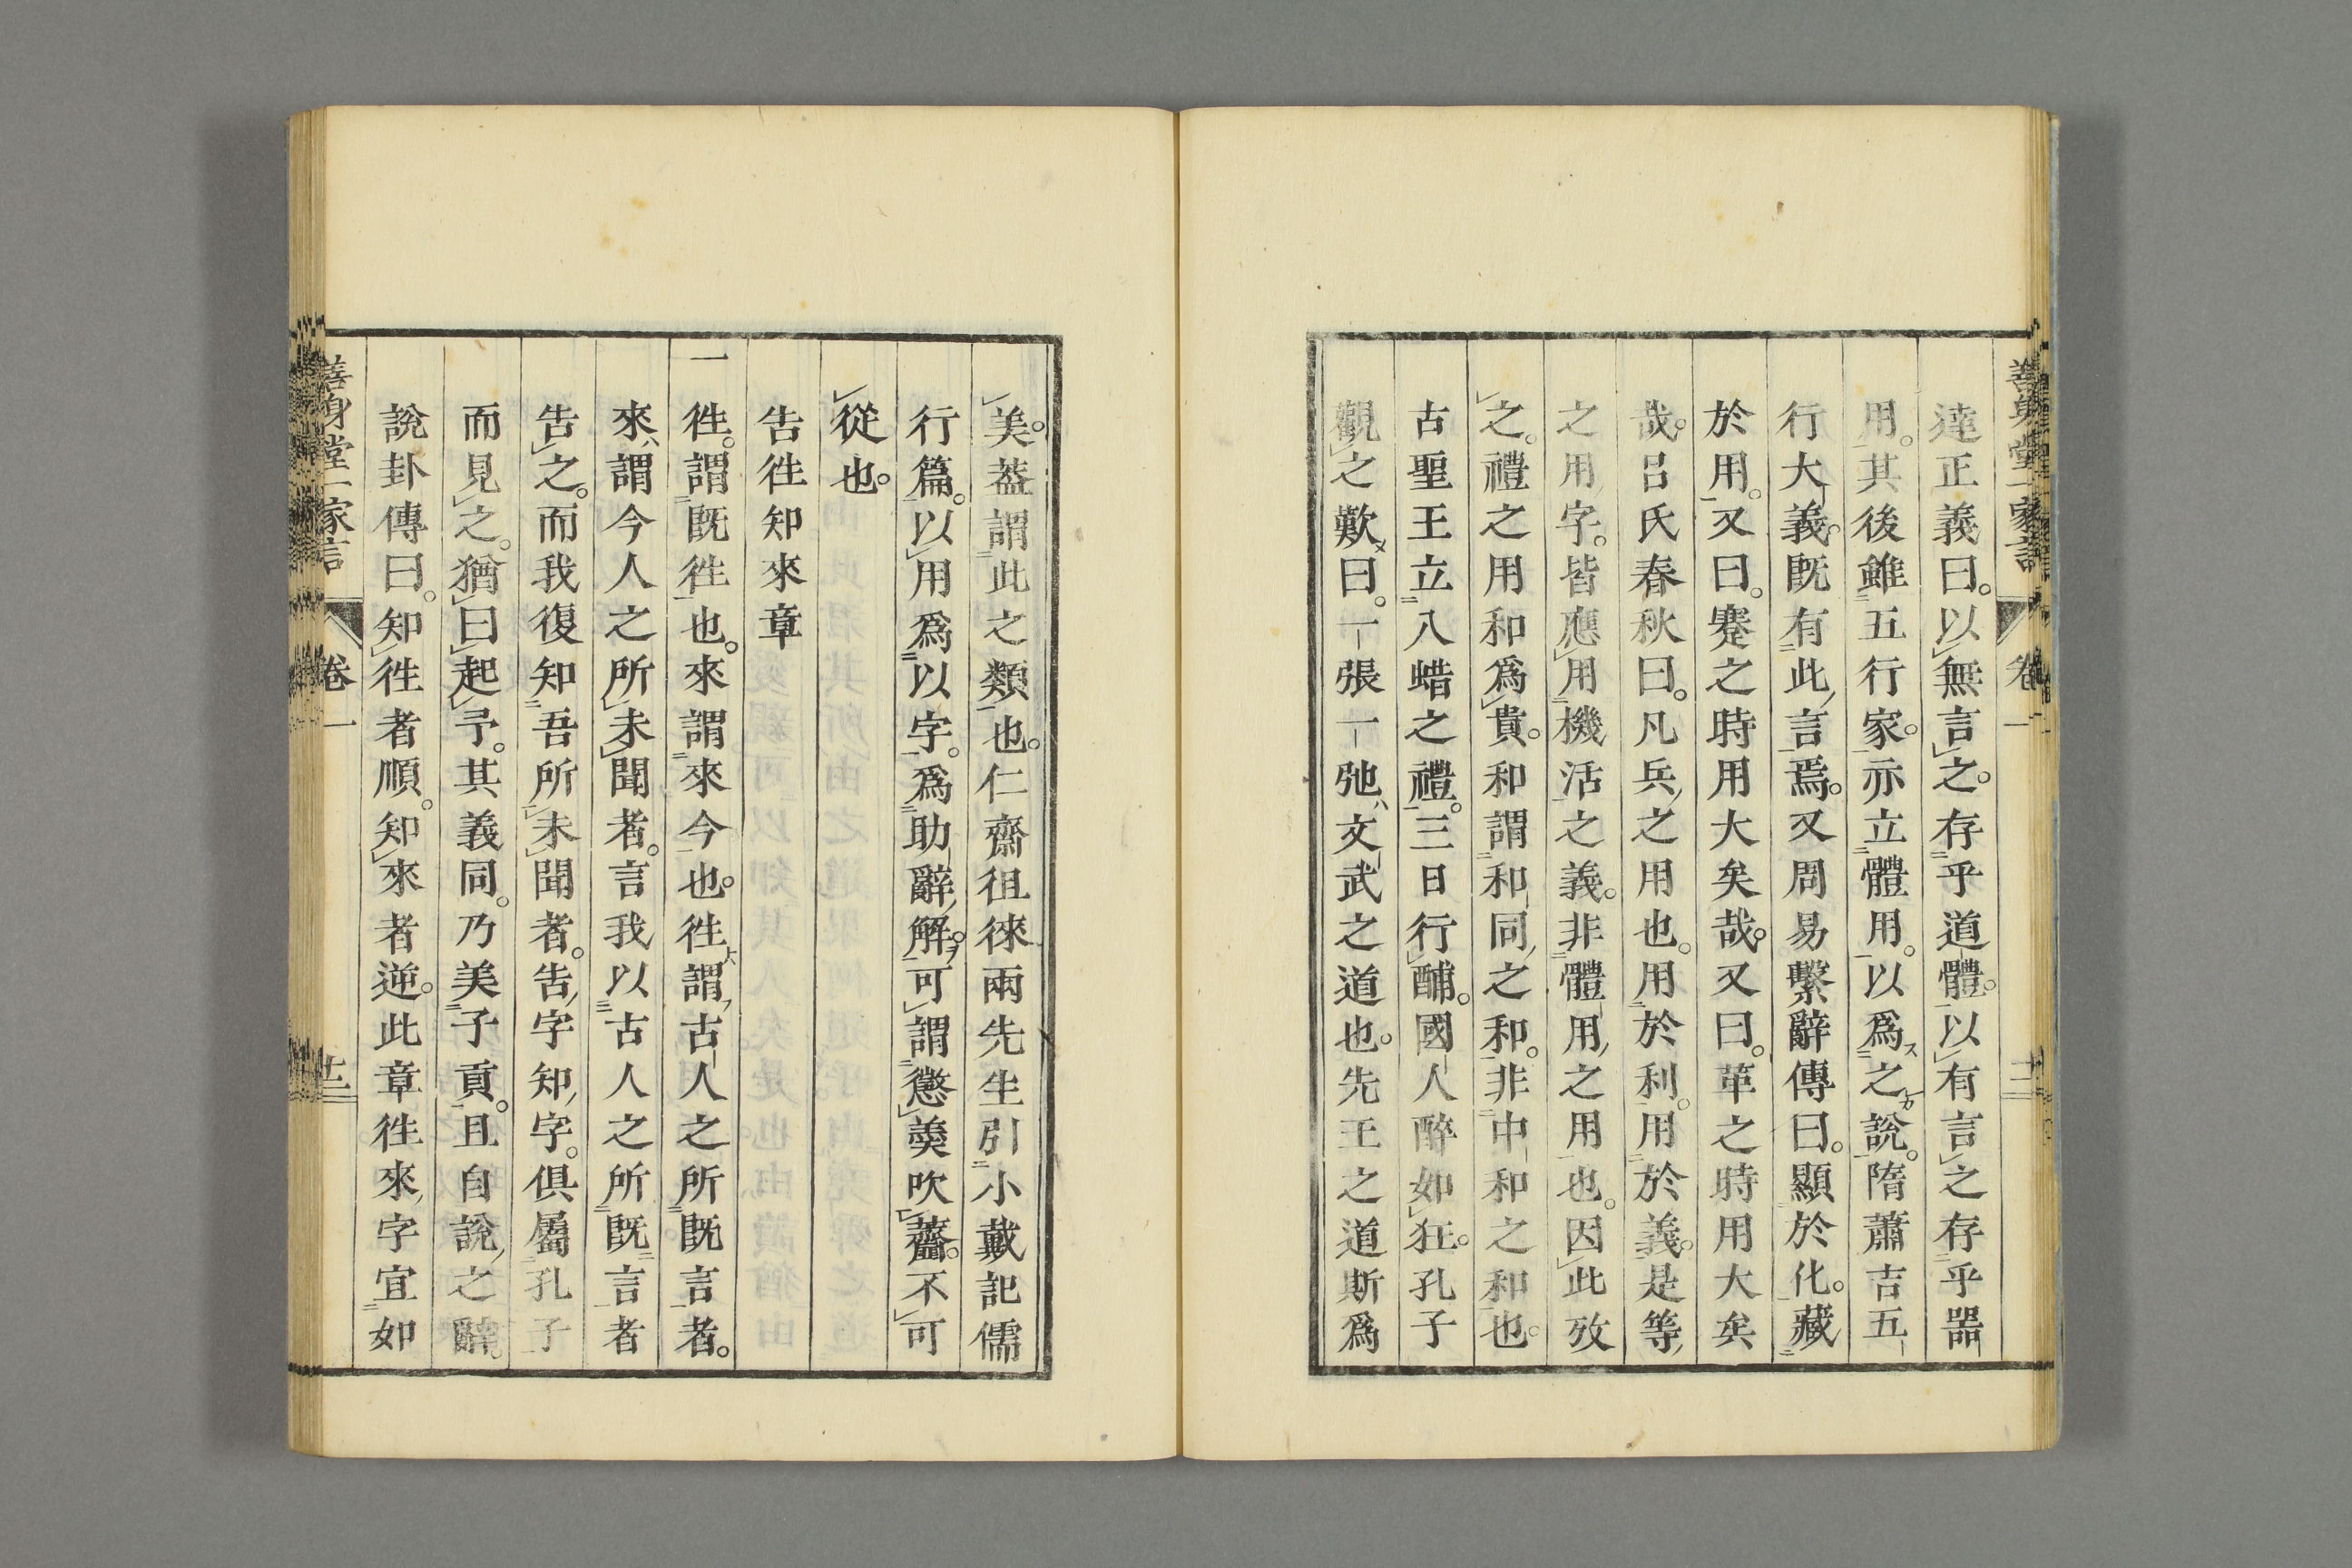 善身堂一家言 卷一 十二
達正義曰。以無言之。存乎道體。以有言之存乎器
用。其後雖五行家。亦立體用。以爲之說。隋蕭吉五
行大義。既有此言焉。又周易繫辭傳曰。顯於化。藏
於用。又曰。蹇之時用大矣哉。又曰。革之時用大矣
哉。呂氏春秋曰。凡兵之用也。用於利。用於義。是等
之用字。皆應用機活之義。非體用之用也。因此攷
之。禮之用和爲貴。和謂和同之和。非中和之和也。
古聖王立八蜡之禮。三日行酺。國人醉如狂。孔子
觀之歎曰。一張一弛、文武之道也。先王之道斯爲
美。蓋謂此之類也。仁齋徂徠兩先生引小戴記儒
行篇。以用爲以字。爲助辭解。可謂懲羹吹韲。不可
從也。
告徃知來章
一徃。謂既徃也。來謂來今也。徃謂古人之所既言者。
來、謂今人之所未聞者。言我以古人之所既言者
告之。而我復知吾所未聞者。告字知字。俱屬孔子
而見之。猶曰起予。其義同。乃美子貢。且自說之辭。
說卦傳曰。知徃者順。知來者逆。此章徃來字宜如
善身堂一家言 卷一 十二